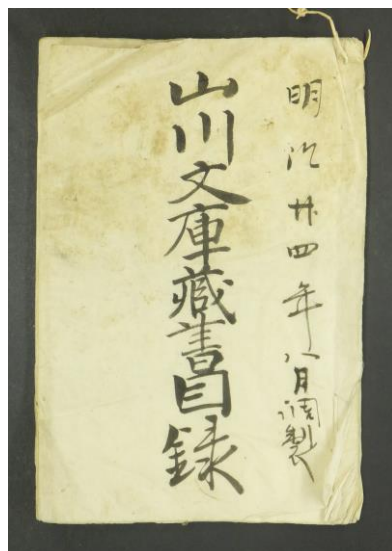 明治廿四年八月調製
山川文庫藏書目録